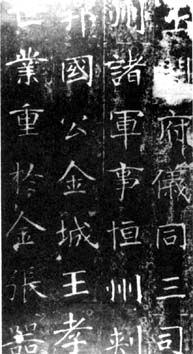 上開府儀同三司
州諸軍事恒州刺
國公金城王孝
業重於金張器